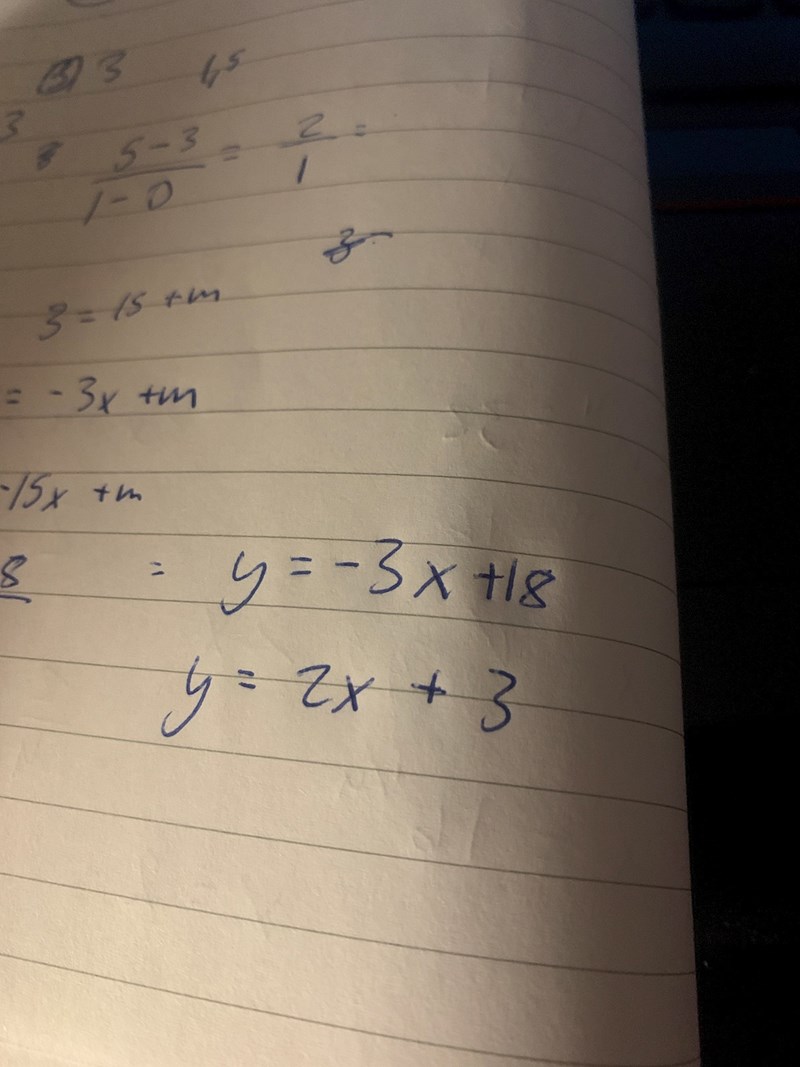 3 1,5
3
5-3/1-0 = 2/1 =
3 = 15 + m
= -3x + m
-15x + m
8 = y = -3x + 18
y = 2x + 3